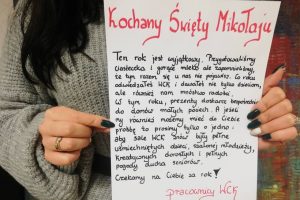 Kochany Święty Mikołaju
Ten rok jest wyjątkowy. Przygotowaliśmy
ciasteczka i gorące mleko ale zapomnieliśmy,
że tym razem się u nas nie pojawisz. Co roku
odwiedzałeś WCK i dawałeś nie tylko dzieciom,
ale również nam mnóstwo radości.
W tym roku, prezenty dostarcz bezpośrednio
do domów małych pociech. A jeżeli
my również możemy mieć do Ciebie
prośbę to prosimy tylko o jedno:
aby sale WCK znów były pełne
uśmiechniętych dzieci, szalonej młodzieży,
kreatywnych dorosłych i pełnych
pogody ducha seniorów.
Czekamy na Ciebie za rok
pracownicy WCK